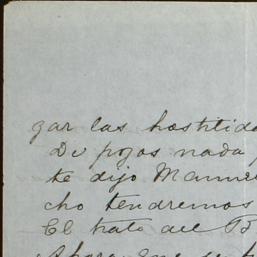 gar las hostilid
De pojos nada
te dijo Manue
cho tendremos
El trato del B